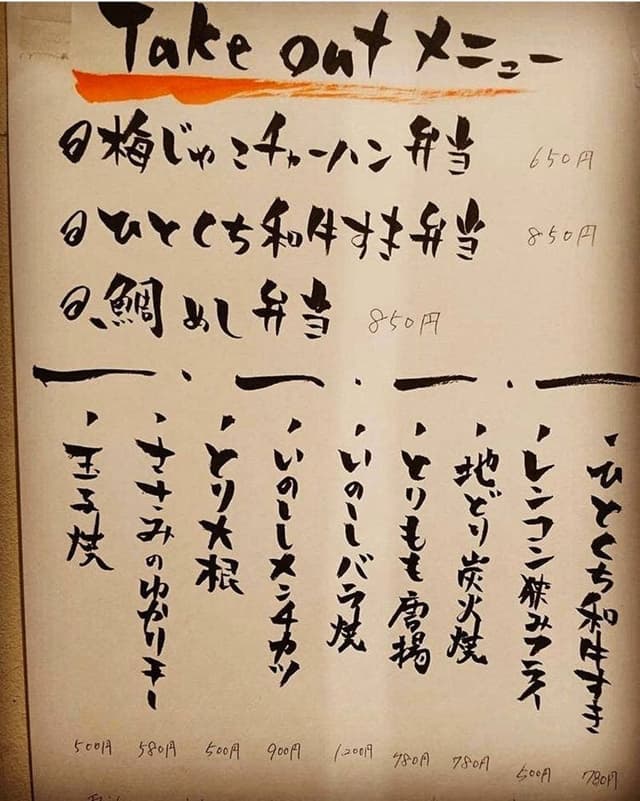 Take out メニュー
梅じゃこチャーハン弁当 650円
ひとくち和牛すき弁当 850円
鯛めし弁当 850円
・ひとくち和牛すき 780円
・レンコン狭みフライ 500円
・地どり炭火焼 780円
・とりもも唐揚 780円
・いのししバラ焼 1,200円
・いのししメンチカツ 900円
・とり大根 500円
・ささみのゆかりチー 580円
・玉子焼 500円